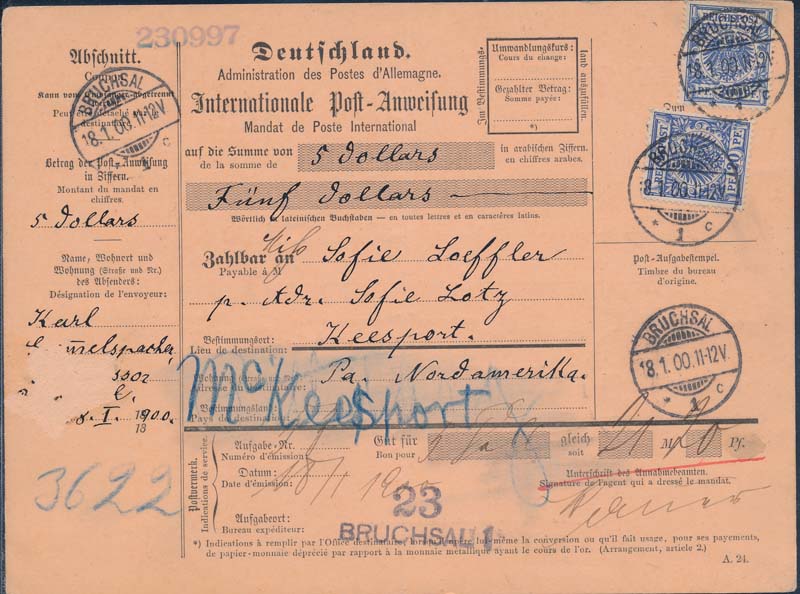 230997
Abschnitt.
Kann vom
Peut être détaché
Betrag der Post-Anweisung
in Ziffern.
Montant du mandat en
chiffres.
5 Dollars
Name, Wohnort und
Wohnung (Straße und Nr.)
des Absenders:
Désignation de l'envoyeur:
Karl
1900.
3622
BRUCHSAL
18.1.00.11-12V.
* 1 c
Deutschland.
Administration des Postes d'Allemagne.
Internationale Post-Anweisung
Mandat de Poste International
Im Bestimmungs-
land auszufüllen
Umwandlungskurs:
Cours du change:
Gezahlter Betrag:
Somme payée:
*)
auf die Summe von
de la somme de
5 Dollars
in arabischen Ziffern.
en chiffres arabes.
Fünf Dollars
Wörtlich in lateinischen Buchstaben — en toutes lettres et en caractères latins.
Zahlbar an
Payable à M
Miss Sofie Loeffler
p. Adr. Sofie Lotz
Bestimmungsort:
Lieu de destination:
Keesport.
Pa. Nordamerika.
McKeesport
Bestimmungsland:
Pays de destination:
Postvermerk.
Indications de service.
Aufgabe-Nr.
Numéro d'émission:
Gut für
Bon pour
gleich
soit
21 M 20 Pf.
Datum:
Date d'émission:
18/1 1900
Unterschrift des Annahmebeamten.
Signature de l'agent qui a dressé le mandat.
Aufgabeort:
Bureau expéditeur:
23
BRUCHSAL 1
*) Indications à remplir par l'Office destinataire, lorsqu'il opère lui-même la conversion ou qu'il fait usage, pour ses paiements,
de papier-monnaie déprécié par rapport à la monnaie métallique ayant le cours de l'or. (Arrangement, article 2.)
A. 24.
REICHSPOST
BRUCHSAL
18.1.00.11-12V.
BRUCHSAL
18.1.00.11-12V.
* 1 c
Post-Aufgabestempel.
Timbre du bureau
d'origine.
BRUCHSAL
18.1.00.11-12V.
* 1 c